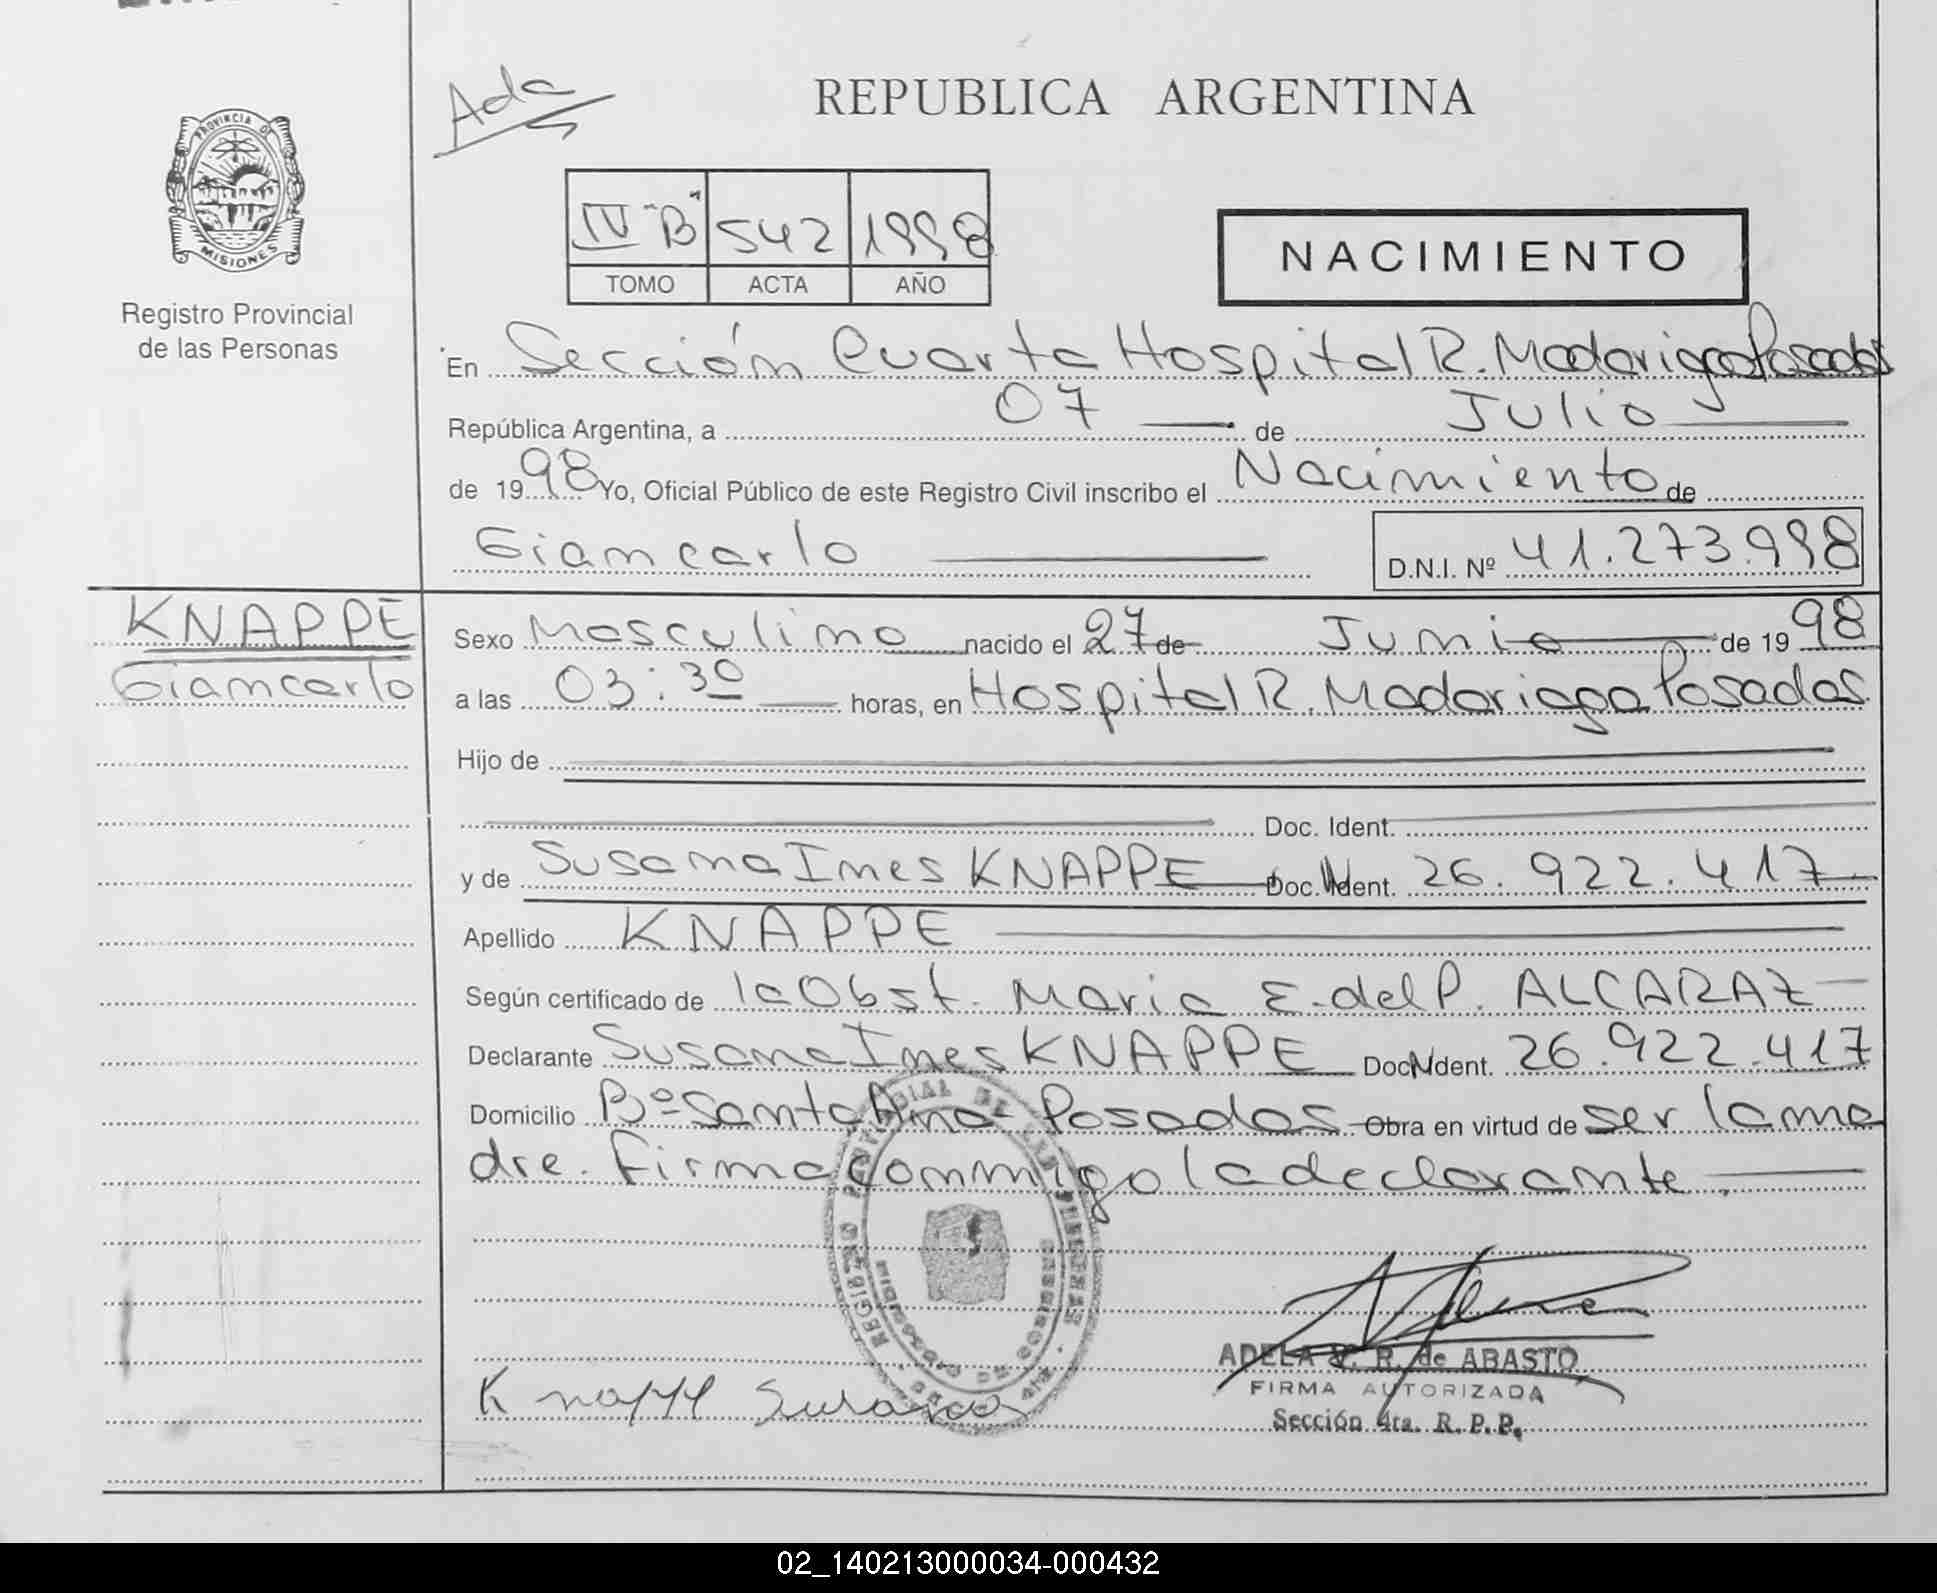 Ada
REPUBLICA ARGENTINA
PROVINCIA DE
MISIONES
Registro Provincial
de las Personas
IV "B" 542 1998
TOMO ACTA AÑO
NACIMIENTO
En Sección Cuarta Hospital R. Madariaga Posadas
República Argentina, a 07 de Julio
de 1998 Yo, Oficial Público de este Registro Civil inscribo el Nacimiento de
Giancarlo D.N.I. Nº 41.273.998
KNAPPE
Giancarlo
Sexo Masculino nacido el 27 de Junio de 1998
a las 03:30 horas, en Hospital R. Madariaga Posadas.
Hijo de
Doc. Ident.
y de Susana Ines KNAPPE Doc. Ident. 26.922.417.
Apellido KNAPPE
Según certificado de la Obst. Maria E. del P. ALCARAZ
Declarante Susana Ines KNAPPE Doc. Ident. 26.922.417
Domicilio Bº Santa Ana - Posadas Obra en virtud de ser la ma
dre. Firma conmigo la declarante.
REGISTRO PROVINCIAL DE LAS PERSONAS
ADELA R. de ABASTO
FIRMA AUTORIZADA
Sección 4ta. R. P. P.
Knappe Susana
02_140213000034-000432